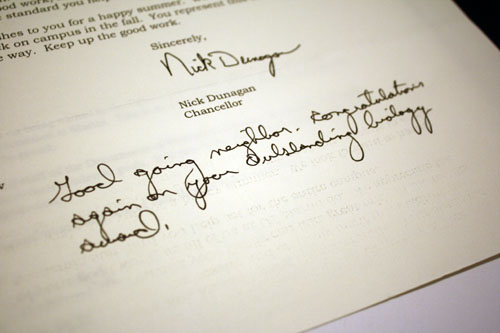 ood work,
standard you help
shes to you for a happy summer.
k on campus in the fall. You represent this
e way. Keep up the good work.
Sincerely,
Nick Dunagan
Nick Dunagan
Chancellor
Good going neighbor. Congratulations
again on your outstanding biology
award.